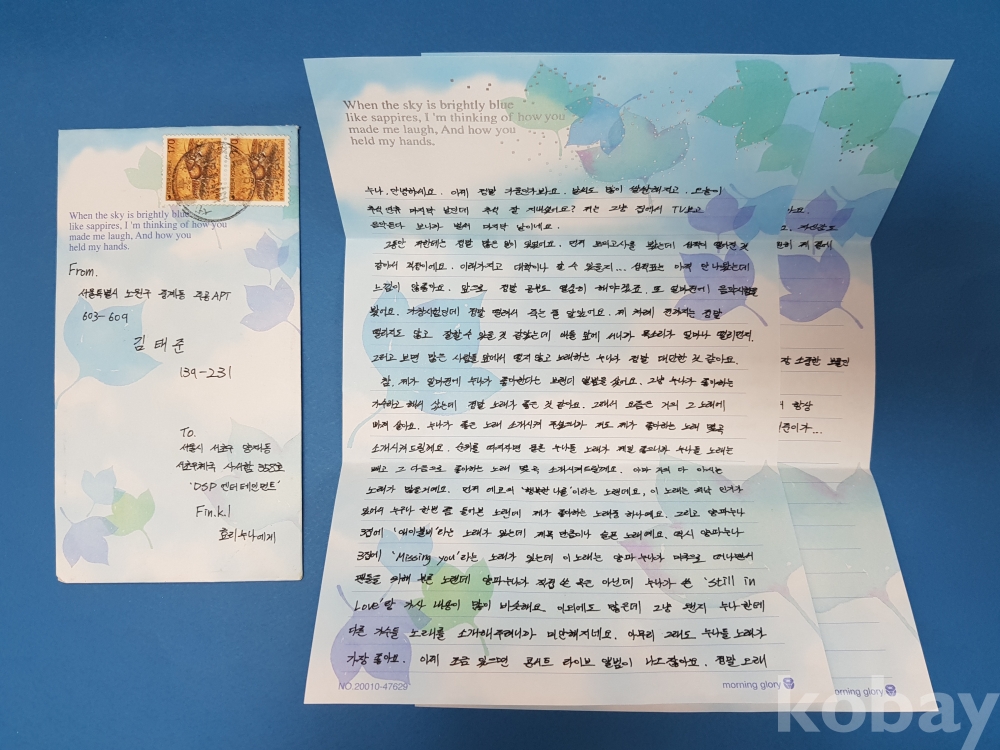 When the sky is brightly blue
like sappires, I 'm thinking of how you
made me laugh, And how you
held my hands.
From.
서울특별시 노원구 중계동 주공 APT
603-609
김태준
139-231
To.
서울시 서초구 양재동
서초우체국 사서함 355호
'DSP 엔터테인먼트'
Fin.k.l
효리누나에게
70
70
When the sky is brightly blue
like sappires, I 'm thinking of how you
made me laugh, And how you
held my hands.
누나. 안녕하세요. 이제 정말 가을인가봐요. 날씨도 많이 쌀쌀해지고. 오늘이
추석 연휴 마지막 날인데 추석 잘 지내셨어요? 저는 그냥 집에서 TV보고
음악듣다 보니까 벌써 마지막 날이네요.
그동안 저한테는 정말 많은 일이 있었어요. 먼저 모의고사를 봤는데 성적이 떨어진 것
같아서 걱정이에요. 이래가지고 대학이나 갈 수 있을지... 성적표는 아직 안 나왔는데
느낌이 안좋아요. 앞으로 정말 공부도 열심히 해야겠죠. 또 얼마전에 음악시험을
봤어요. 가창시험인데 정말 떨려서 죽는 줄 알았어요. 제 차례 전까지는 정말
떨리지도 않고 잘할 수 있을 것 같았는데 애들 앞에 서니까 목소리가 얼마나 떨리던지.
그러고 보면 많은 사람들 앞에서 떨지 않고 노래하는 누나가 정말 대단한 것 같아요.
참. 제가 얼마전에 누나가 좋아한다는 브랜디 앨범을 샀어요. 그냥 누나가 좋아하는
가수라고 해서 샀는데 정말 노래가 좋은 것 같아요. 그래서 요즘은 거의 그 노래에
빠져 살아요. 누나가 좋은 노래 소개시켜 주셨으니까 저도 제가 좋아하는 노래 몇곡
소개시켜드릴께요. 순위를 따지자면 물론 누나들 노래가 제일 좋으니까 누나들 노래는
빼고 그 다음으로 좋아하는 노래 몇곡 소개시켜드릴께요. 아마 거의 다 아시는
노래가 많을거예요. 먼저 에코의 '행복한 나를'이라는 노랜데요, 이 노래는 워낙 인기가
있어서 누구나 한번쯤 들어본 노랜데 제가 좋아하는 노래중 하나예요. 그리고 양파누나
3집에 '애이불비'라는 노래가 있는데 제목 만큼이나 슬픈 노래예요. 역시 양파누나
3집에 'Missing you'라는 노래가 있는데 이 노래는 양파 누나가 미국으로 떠나면서
팬들을 위해 부른 노랜데 양파누나가 직접 쓴 곡은 아닌데 누나가 쓴 'Still in
Love'랑 가사 내용이 많이 비슷해요. 이외에도 많은데 그냥 왠지 누나한테
다른 가수들 노래를 소개해주려니까 미안해지네요. 아무리 그래도 누나들 노래가
가장 좋아요. 이제 조금 있으면 콘서트 라이브 앨범이 나오잖아요. 정말 오래
NO.20010-47629
morning glory
아요.
장 소중한 보물인
항상
태준이가...
morning glory
kobay